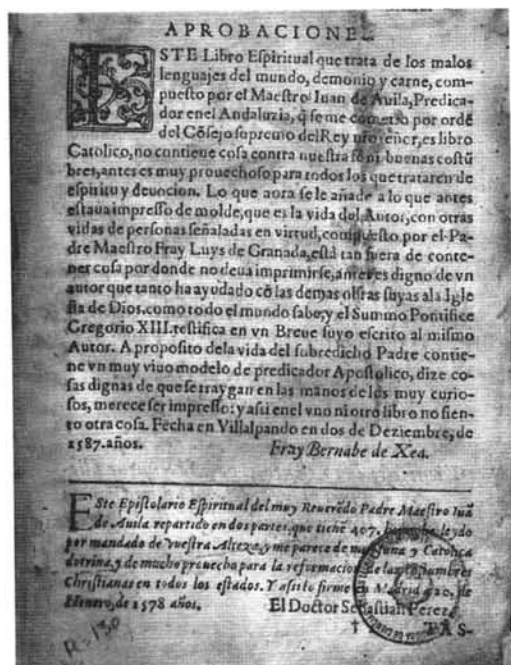 APROBACIONE
ESTE Libro Espiritual que trata de los malos
lenguajes del mundo, demonio y carne, com-
puesto por el Maestro Iuan de Auila, Predica-
dor en el Andaluzia, q̃ se me cometio por ordẽ
del Cõsejo supremo del Rey señor, es libro
Catolico, no contiene cosa contra nuestra fè ni buenas costũ
bres, antes es muy prouechoso para todos los que trataren de
espiritu y deuocion. Lo que aora se le añade a lo que antes
estaua impresso de molde, que es la vida del Autor, con otras
vidas de personas señaladas en virtud, compuesto por el Pa-
dre Maestro Fray Luys de Granada, està tan fuera de conte-
ner cosa por donde no deua imprimirse, antes es digno de vn
autor que tanto ha ayudado cõ las demas obras suyas a la Igle
sia de Dios, como todo el mundo sabe, y el Summo Pontifice
Gregorio XIII. testifica en vn Breue suyo escrito al mismo
Autor. A proposito de la vida del sobredicho Padre contie-
ne vn muy viuo modelo de predicador Apostolico, dize co-
sas dignas de que se traygan en las manos de los muy curio-
sos, merece ser impresso: y assi en el vno ni otro libro no sien-
to otra cosa. Fecha en Villalpando en dos de Deziembre, de
1587. años. Fray Bernabe de Xea.
ESte Epistolario Espiritual del muy Reuerẽdo Padre Maestro Iuã
de Auila repartido en dos partes, que tienẽ 407. leydo
por mandado de vuestra Alteza, y me parece de muy y Catolica
dotrina, y de mucho prouecho para la reformacion de las costumbres
Christianas en todos los estados. Y assi lo firme en Madrid de
Henero, de 1578 años. El Doctor Sebastian Perez.
† TAS-
R-130